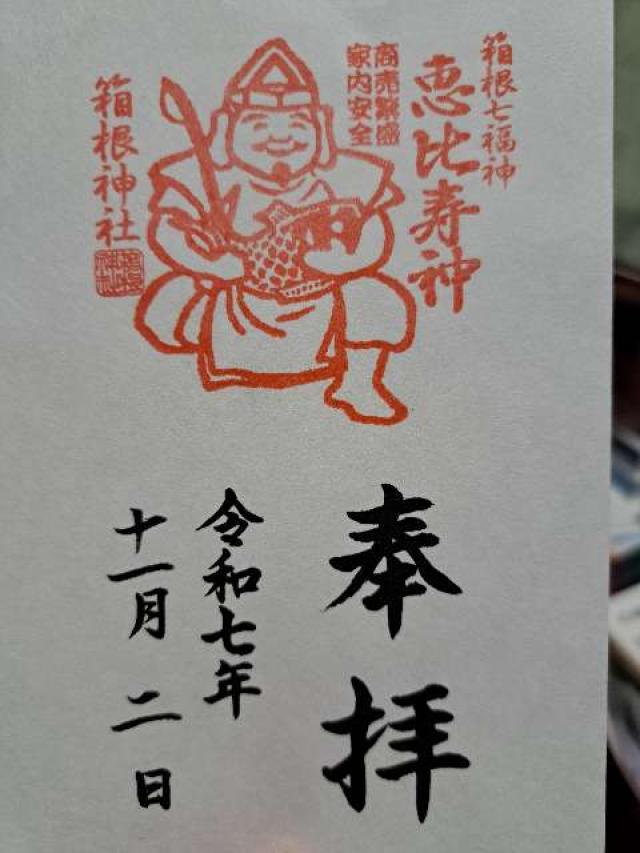 箱根七福神
恵比寿神
商売繁盛
家内安全
箱根神社
奉拝
令和七年
十一月二日